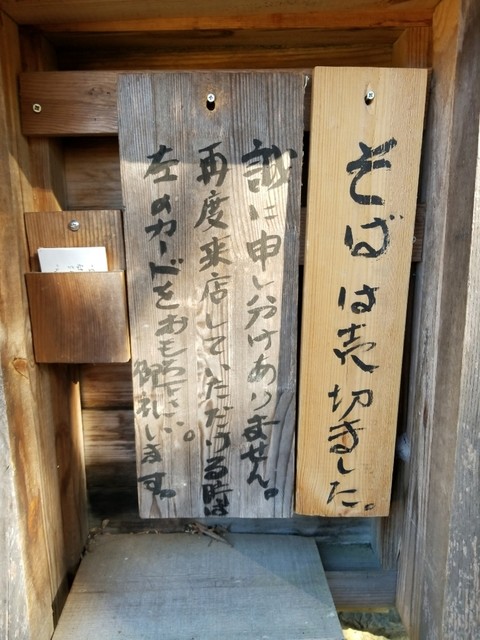 そば は売切ました。
誠に申し分けありません。
再度来店していただける時は
左のカードをおもち下さい。
御礼します。